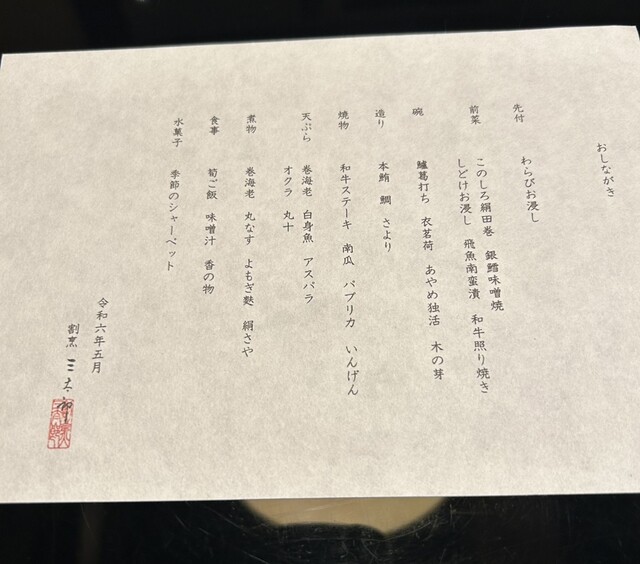 おしながき
先付
わらびお浸し
前菜
このしろ絹田巻　銀鱈味噌焼
しどけお浸し　飛魚南蛮漬　和牛照り焼き
碗
鱸葛打ち　衣茗荷　あやめ独活　木の芽
造り
本鮪　鯛　さより
焼物
和牛ステーキ　南瓜　パプリカ　いんげん
天ぷら
巻海老　白身魚　アスパラ
オクラ　丸十
煮物
巻海老　丸なす　よもぎ麩　絹さや
食事
筍ご飯　味噌汁　香の物
水菓子
季節のシャーベット
令和六年五月
割烹　三太郎